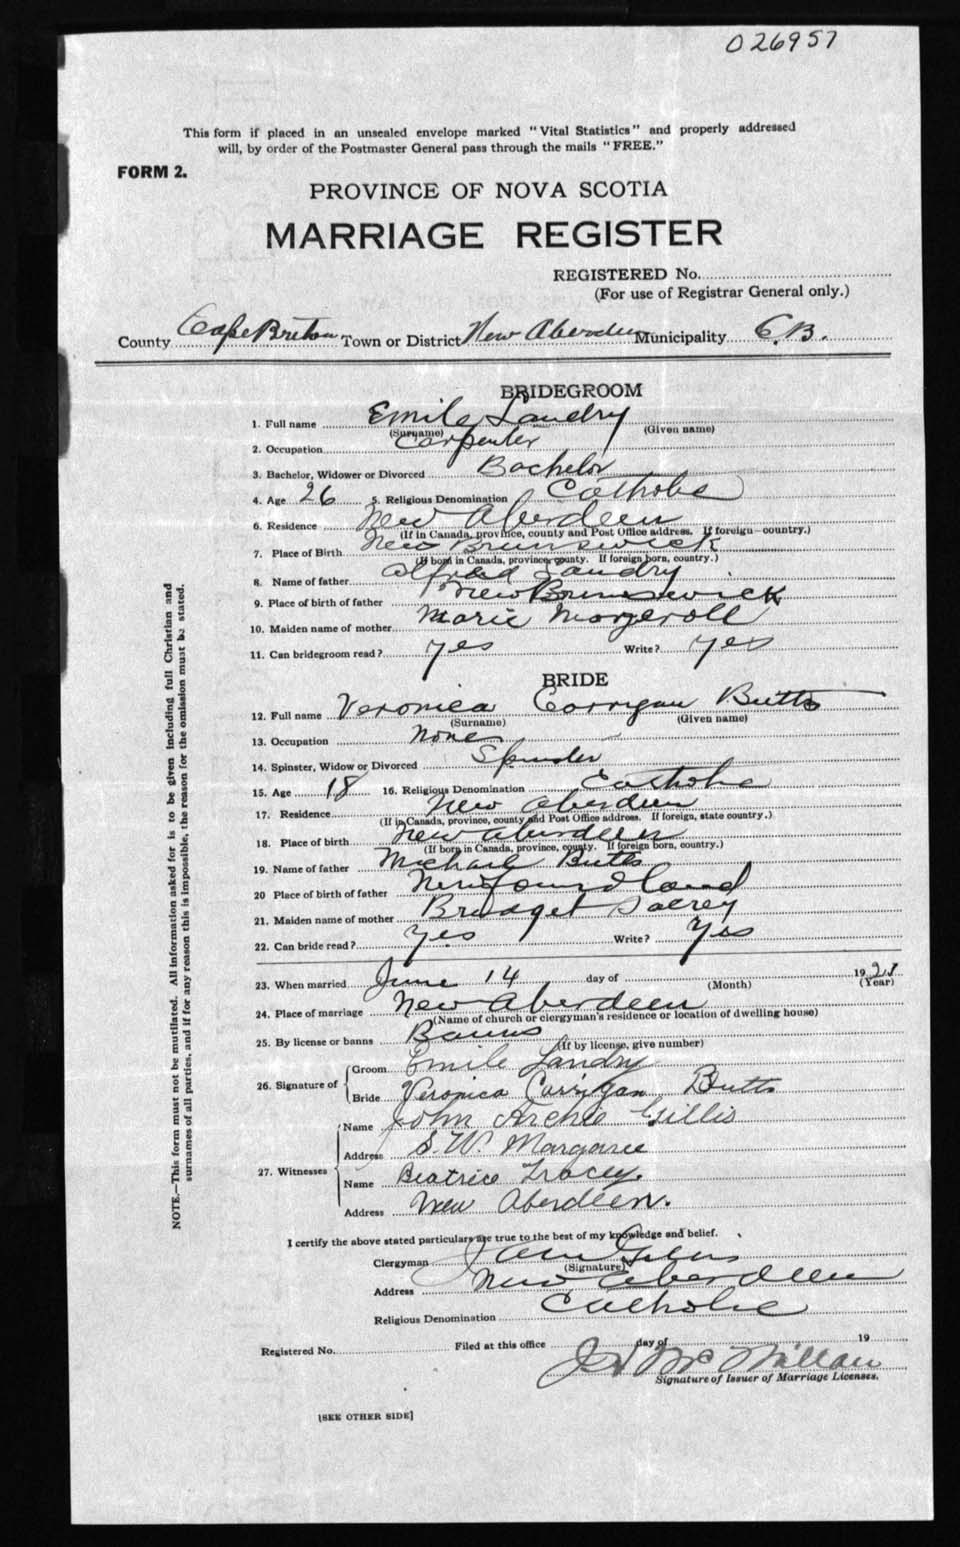 026957
This form if placed in an unsealed envelope marked "Vital Statistics" and properly addressed
will, by order of the Postmaster General pass through the mails "FREE."
FORM 2.
PROVINCE OF NOVA SCOTIA
MARRIAGE REGISTER
REGISTERED No.
(For use of Registrar General only.)
County Cape Breton Town or District New Aberdeen Municipality C.B.
BRIDEGROOM
1. Full name Emile Landry
(Surname) (Given name)
2. Occupation Carpenter
3. Bachelor, Widower or Divorced Bachelor
4. Age 26 5. Religious Denomination Catholic
6. Residence New Aberdeen
(If in Canada, province, county and Post Office address. If foreign—country.)
7. Place of Birth New Brunswick
(If born in Canada, province county. If foreign born, country.)
8. Name of father Alfred Landry
9. Place of birth of father New Brunswick
10. Maiden name of mother Marie
11. Can bridegroom read? yes Write? yes
BRIDE
12. Full name Veronica Corrigan Butts
(Surname) (Given name)
13. Occupation None
14. Spinster, Widow or Divorced Spinster
15. Age 18 16. Religious Denomination Catholic
17. Residence New Aberdeen
(If in Canada, province, county and Post Office address. If foreign, state country.)
18. Place of birth New Aberdeen
(If born in Canada, province, county. If foreign born, country.)
19. Name of father Michael Butts
20 Place of birth of father Newfoundland
21. Maiden name of mother Bridget
22. Can bride read? Yes Write? Yes
23. When married June 14 day of 1921
(Month) (Year)
24. Place of marriage New Aberdeen
(Name of church or clergyman's residence or location of dwelling house)
25. By license or banns Banns
(If by license, give number)
26. Signature of
Groom Emile Landry
Bride Veronica Carrigan Butts
27. Witnesses
Name John Archie Gillis
Address S.W. Margaree
Name Beatrice Tracey.
Address New Aberdeen.
I certify the above stated particulars are true to the best of my knowledge and belief.
Clergyman
(Signature)
Address New Aberdeen
Religious Denomination Catholic
Registered No. Filed at this office day of 19
J McMillan
Signature of Issuer of Marriage Licenses.
[SEE OTHER SIDE]
NOTE.—This form must not be mutilated. All information asked for is to be given including full Christian and
surnames of all parties, and if for any reason this is impossible, the reason for the omission must be stated.